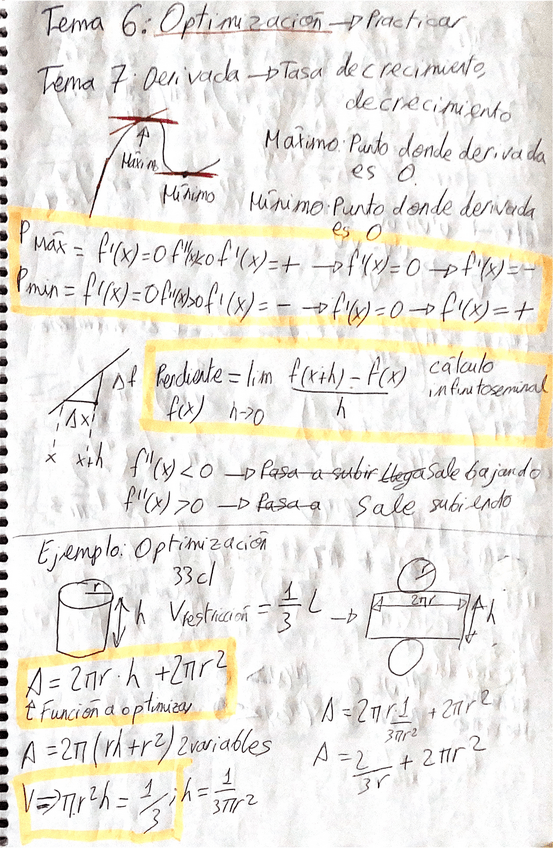 Tema 6: Optimización → Practicar
Tema 7: Derivada → Tasa de crecimiento,
decrecimiento
Máximo: Punto donde derivada
es 0.
Máximo
Mínimo
Mínimo: Punto donde derivada
es 0
P máx = f'(x)=0 f''(x)<0 f'(x)=+ → f'(x)=0 → f'(x)=-
P min = f'(x)=0 f''(x)>0 f'(x)= - → f'(x)=0 → f'(x)=+
Pendiente = lim f(x+h) - f(x) / h cálculo
f(x) h→0 infinitoseminal
Δf
Δx
x x+h
f''(x) < 0 → Pasa a subir Llega Sale bajando
f''(x) > 0 → Pasa a Sale subiendo
Ejemplo: Optimización
33cl
r
h
V restricción = 1/3 L →
r
2πr
h
A = 2πr·h + 2πr²
↑ Función a optimizar
A = 2π(rh+r²) 2 variables
V ⇒ πr²h = 1/3; h = 1/3πr²
A = 2πr 1/3πr² + 2πr²
A = 2/3r + 2πr²